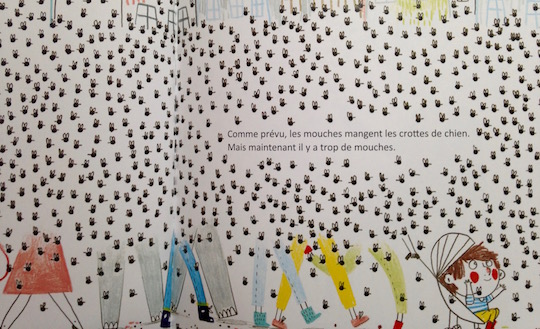 Comme prévu, les mouches mangent les crottes de chien.
Mais maintenant il y a trop de mouches.